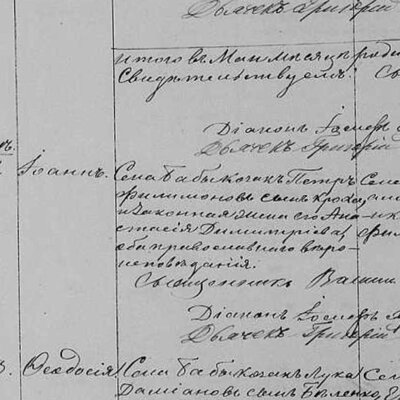 Дьячекъ Григорій
итого въ Маи мѣсяцѣ роди
Свидѣтельствуемъ: С
Діаконъ Іосифъ
Дьячекъ Григорій
Іоаннъ. Села Бабы козакъ Петръ Села
Филимоновъ сынъ
и законная жена его Ана
стасія Димитріева,
оба православнаго вѣро-
исповѣданія.
Священникъ
Діаконъ Іосифъ
Дьячекъ Григорій
3. Ѳеодосія Села Бабы козакъ Лука Се
Даміановъ сынъ Бѣленко